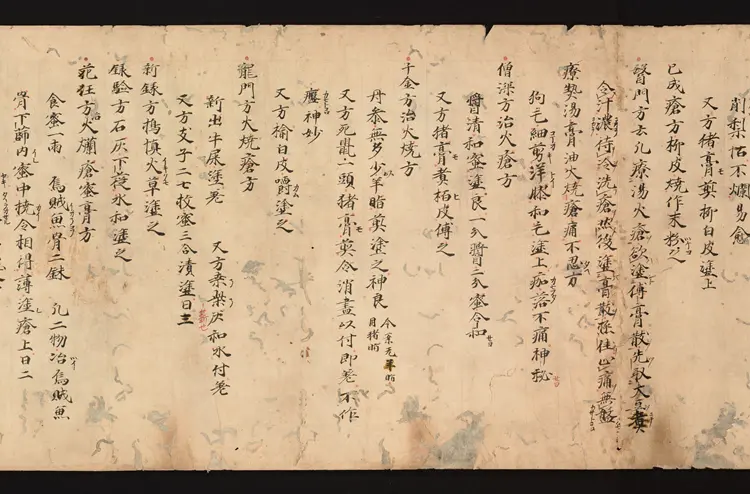 削梨怗不爛易愈
又方猪膏煎柳白皮塗上
已成瘡方柳皮燒作末粉之
醫門方云凡療湯火瘡欲塗傅膏散先取大豆煮
令汁濃待冷洗瘡然後塗膏散擦佳止痛無瘢
療熱湯膏油火燒瘡痛不忍方
狗毛細剪洋膠和毛塗上痂落不痛神秘
僧深方治火瘡方
醬清和蜜塗良一分醬二分蜜合和
又方猪膏煮柏皮傅之
千金方治火燒方
丹參無多少羊脂煎塗之神良
今案元
又方死鼠一頭猪膏煎令消盡以付即差不作
瘢神妙
又方榆白皮嚼塗之
龍門方火燒瘡方
新出牛屎塗差 又方桑柴灰和水付差
又方支子二七枚蜜三合漬塗日三
新錄方擣慎火草塗之
錄驗方石灰下篩水和塗之
范汪方火爛瘡蜜膏方
食蜜一兩 烏賊魚骨二銖 凡二物冶烏賊魚
骨下篩內蜜中撓令相得薄塗瘡上日二